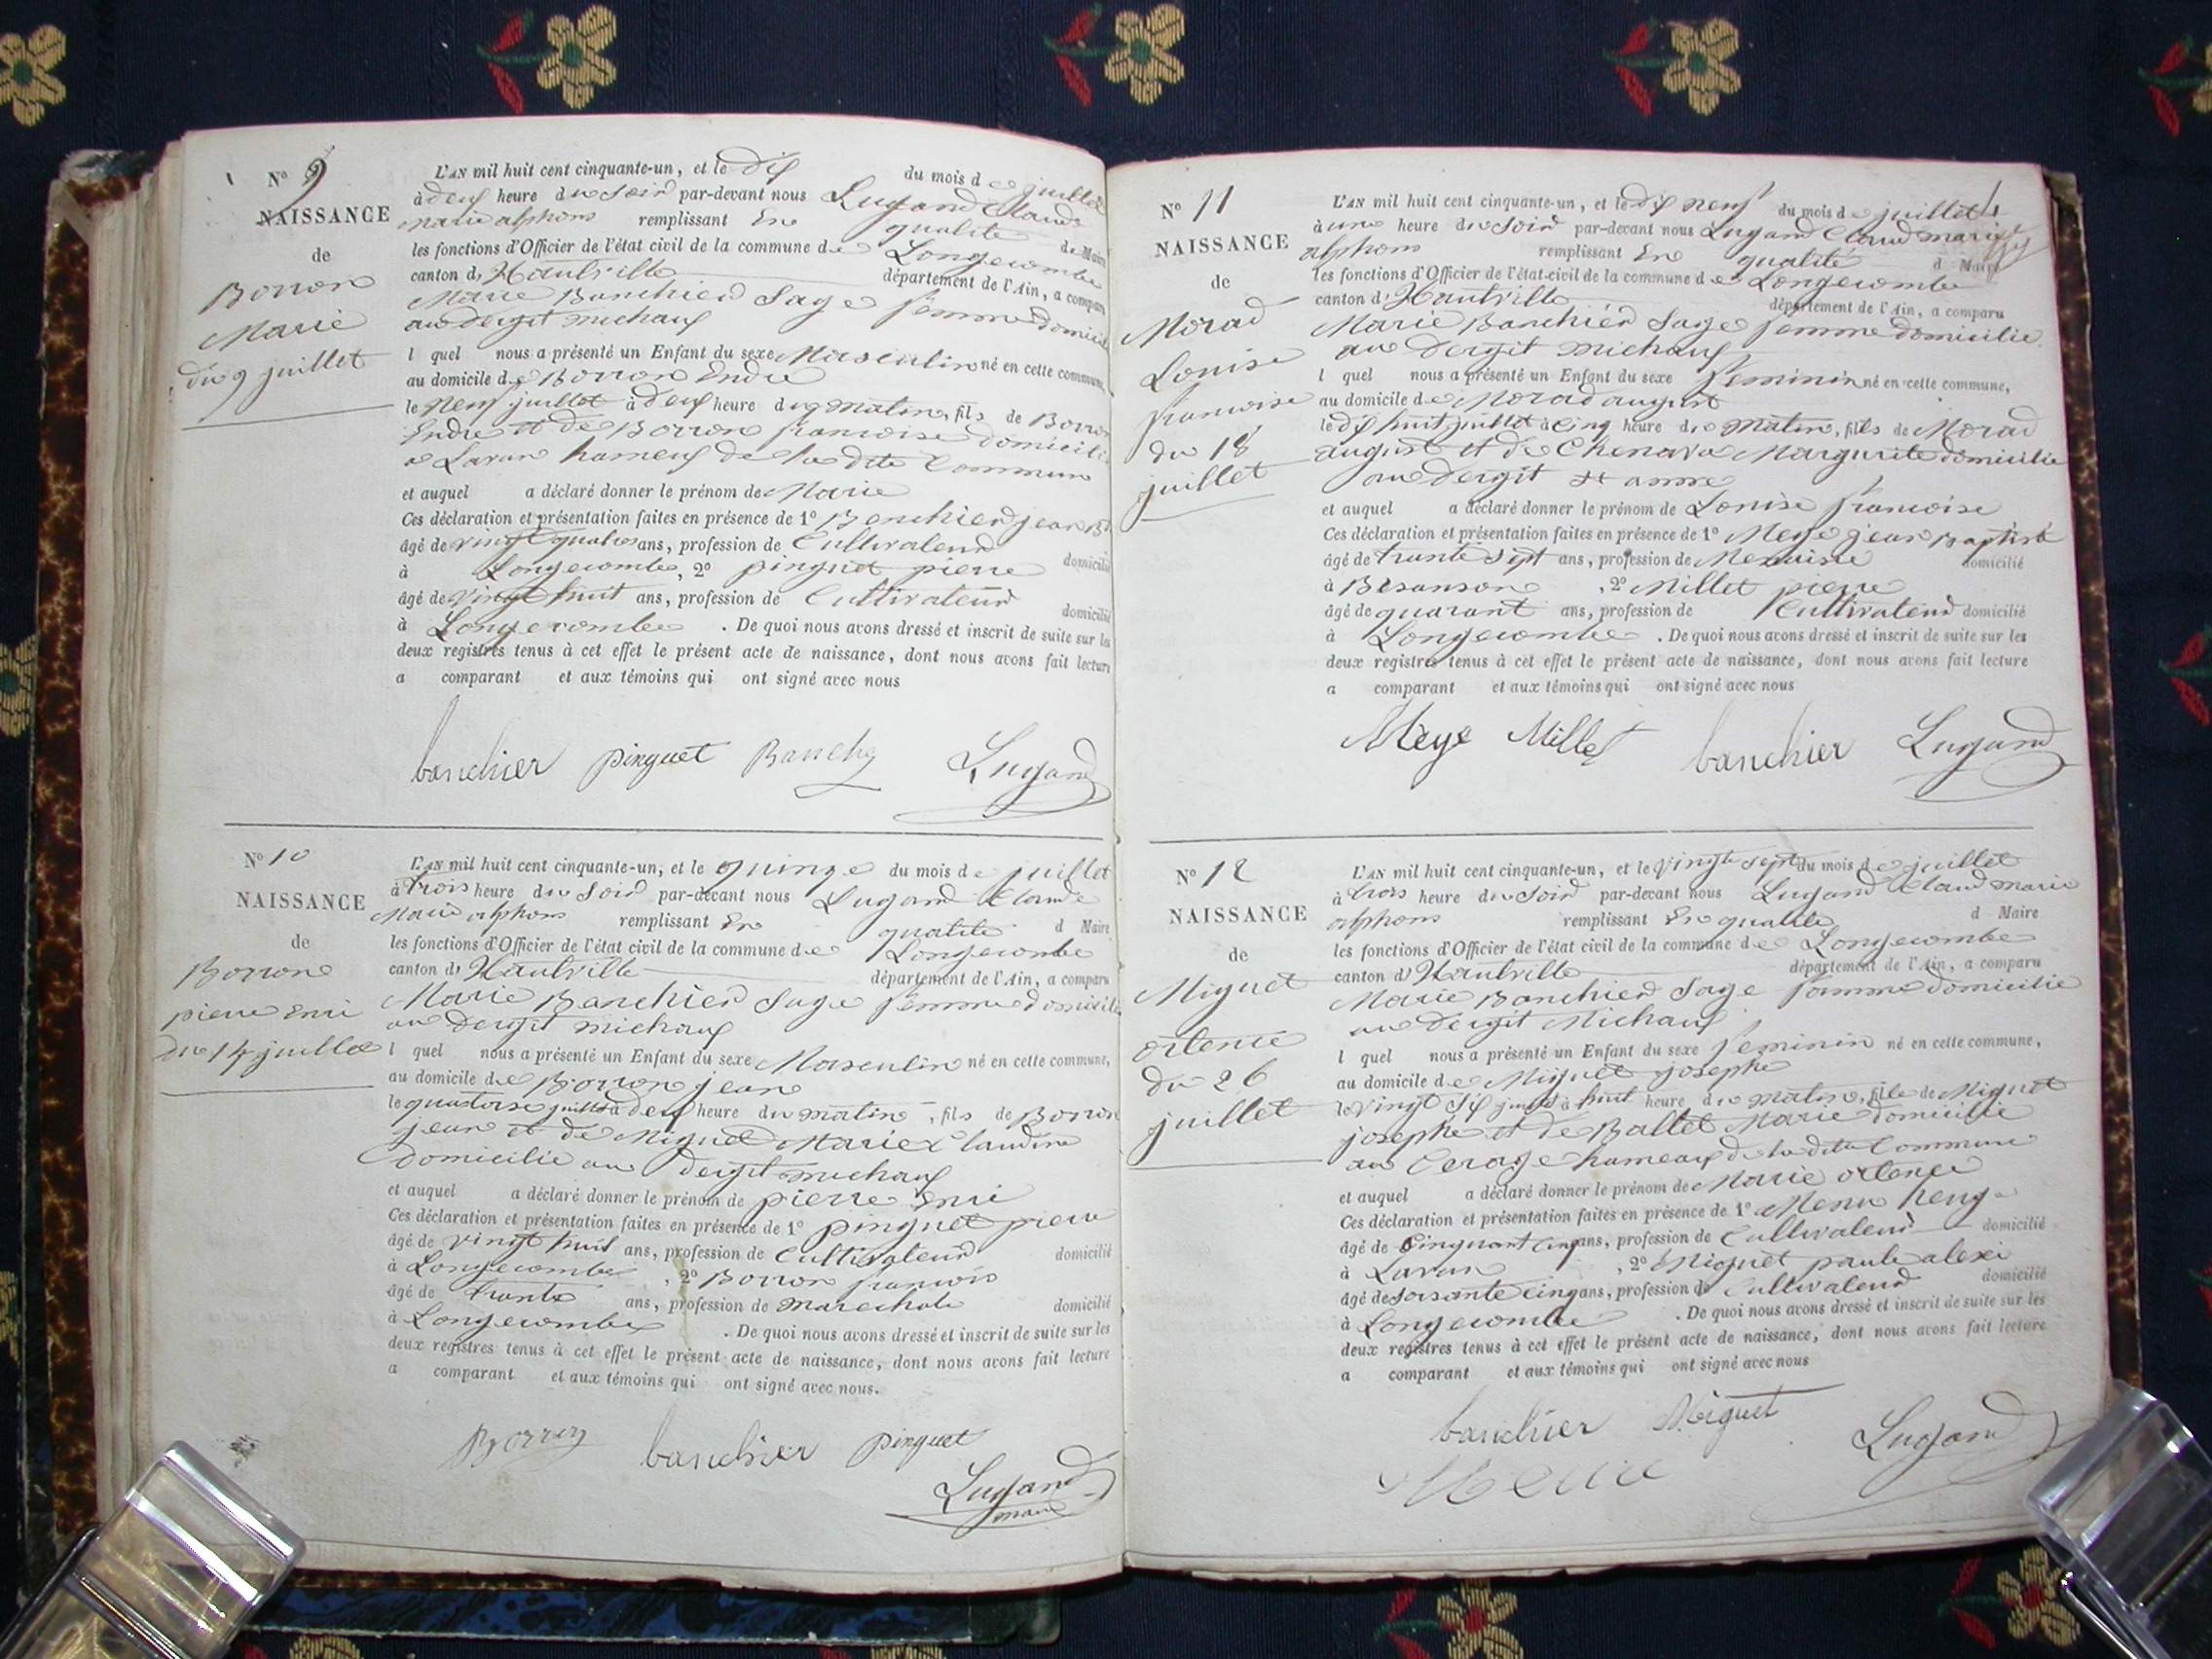 N° 9
NAISSANCE
de
Borron
Marie
du 9 juillet
L'AN mil huit cent cinquante-un, et le dix du mois de juillet
à deux heure du Soir par-devant nous Lugand Claude
Marie alphons remplissant En qualité de Maire
les fonctions d'Officier de l'état civil de la commune de Longecombe
canton d'Hautville département de l'Ain, a comparu
Marie Banchier Sage femme domicilié
au dergit michaux
l quel nous a présenté un Enfant du sexe Masculin né en cette commune,
au domicile de Borron Endre
le Neuf juillet à deux heure du matin, fils de Borron
Endre et de Borron francoise domicilié
a Lavan hameux de la dite Commun
et auquel a déclaré donner le prénom de Marie
Ces déclaration et présentation faites en présence de 1° Benchier jean Bt
âgé de vingt quatre ans, profession de Cultivateur domicilié
à Longecombe, 2° pinguet pierre
âgé de vingt huit ans, profession de Cultivateur domicilié
à Longecombe . De quoi nous avons dressé et inscrit de suite sur les
deux registres tenus à cet effet le présent acte de naissance, dont nous avons fait lecture
a comparant et aux témoins qui ont signé avec nous
banchier pinguet Lugand
N° 10
NAISSANCE
de
Borron
pierre Enri
du 14 juillet
L'AN mil huit cent cinquante-un, et le quinze du mois de juillet
à trois heure du Soir par-devant nous Lugand Claude
Marie alphons remplissant En qualité d Maire
les fonctions d'Officier de l'état civil de la commune de Longecombe
canton d'Hautville département de l'Ain, a comparu
Marie Banchier Sage femme domicilié
au dergit michaux
l quel nous a présenté un Enfant du sexe Masculin né en cette commune,
au domicile de Borron jean
le quatorse juillet à deux heure du matin, fils de Borron
jean et de Miguet Marie Claudine
domicilié au dergit michaux
et auquel a déclaré donner le prénom de pierre Enri
Ces déclaration et présentation faites en présence de 1° pinguet pierre
âgé de vingt huit ans, profession de Cultivateur domicilié
à Longecombe, 2° Borron francois
âgé de trante ans, profession de marechale domicilié
à Longecombe . De quoi nous avons dressé et inscrit de suite sur les
deux registres tenus à cet effet le présent acte de naissance, dont nous avons fait lecture
a comparant et aux témoins qui ont signé avec nous.
Borron banchier pinguet
Lugand
maire
N° 11
NAISSANCE
de
Morad
Louise
francoise
du 18
juillet
L'AN mil huit cent cinquante-un, et le dix neuf du mois de juillet
à une heure du Soir par-devant nous Lugand Claud marie
alphons remplissant En qualité d Maire
les fonctions d'Officier de l'état-civil de la commune de Longecombe
canton d'Hautville département de l'Ain, a comparu
Marie Banchier Sage femme domicilié
au Dergit michaux
l quel nous a présenté un Enfant du sexe feminin né en cette commune,
au domicile de Morad august
le dix huit juillet à cinq heure du Matin, fils de Morad
august et de Chenava Margurite domicilié
au dergit st anne
et auquel a déclaré donner le prénom de Louise francoise
Ces déclaration et présentation faites en présence de 1° Meye jean Baptist
âgé de trante Sept ans, profession de Menuisie domicilié
à Besanson, 2° Millet pierre
âgé de quarant ans, profession de Cultivateur domicilié
à Longecombe . De quoi nous avons dressé et inscrit de suite sur les
deux registres tenus à cet effet le présent acte de naissance, dont nous avons fait lecture
a comparant et aux témoins qui ont signé avec nous
Meye Millet banchier Lugand
N° 12
NAISSANCE
de
Miguet
ortence
du 26
juillet
L'AN mil huit cent cinquante-un, et le vingt sept du mois de juillet
à trois heure du Soir par-devant nous Lugand Claud marie
alphons remplissant En qualité d Maire
les fonctions d'Officier de l'état civil de la commune de Longecombe
canton d'Hautville département de l'Ain, a comparu
Marie Banchier Sage famme domicilié
au dergit Michaux
l quel nous a présenté un Enfant du sexe feminin né en cette commune,
au domicile de Miguet josephe
le vingt six juillet à huit heure du matin, fils de Miguet
josephe et de Ballet Marie domicilié
au Cerage hameaux de la dite Commune
et auquel a déclaré donner le prénom de Marie ortence
Ces déclaration et présentation faites en présence de 1° Menu
âgé de Cinquant Cinq ans, profession de Cultivateur domicilié
à Lavan, 2° Miguet paule alexi
âgé de soisante cinq ans, profession de Cultivateur domicilié
à Longecombe . De quoi nous avons dressé et inscrit de suite sur les
deux registres tenus à cet effet le présent acte de naissance, dont nous avons fait lecture
a comparant et aux témoins qui ont signé avec nous
banchier Miguet Lugand